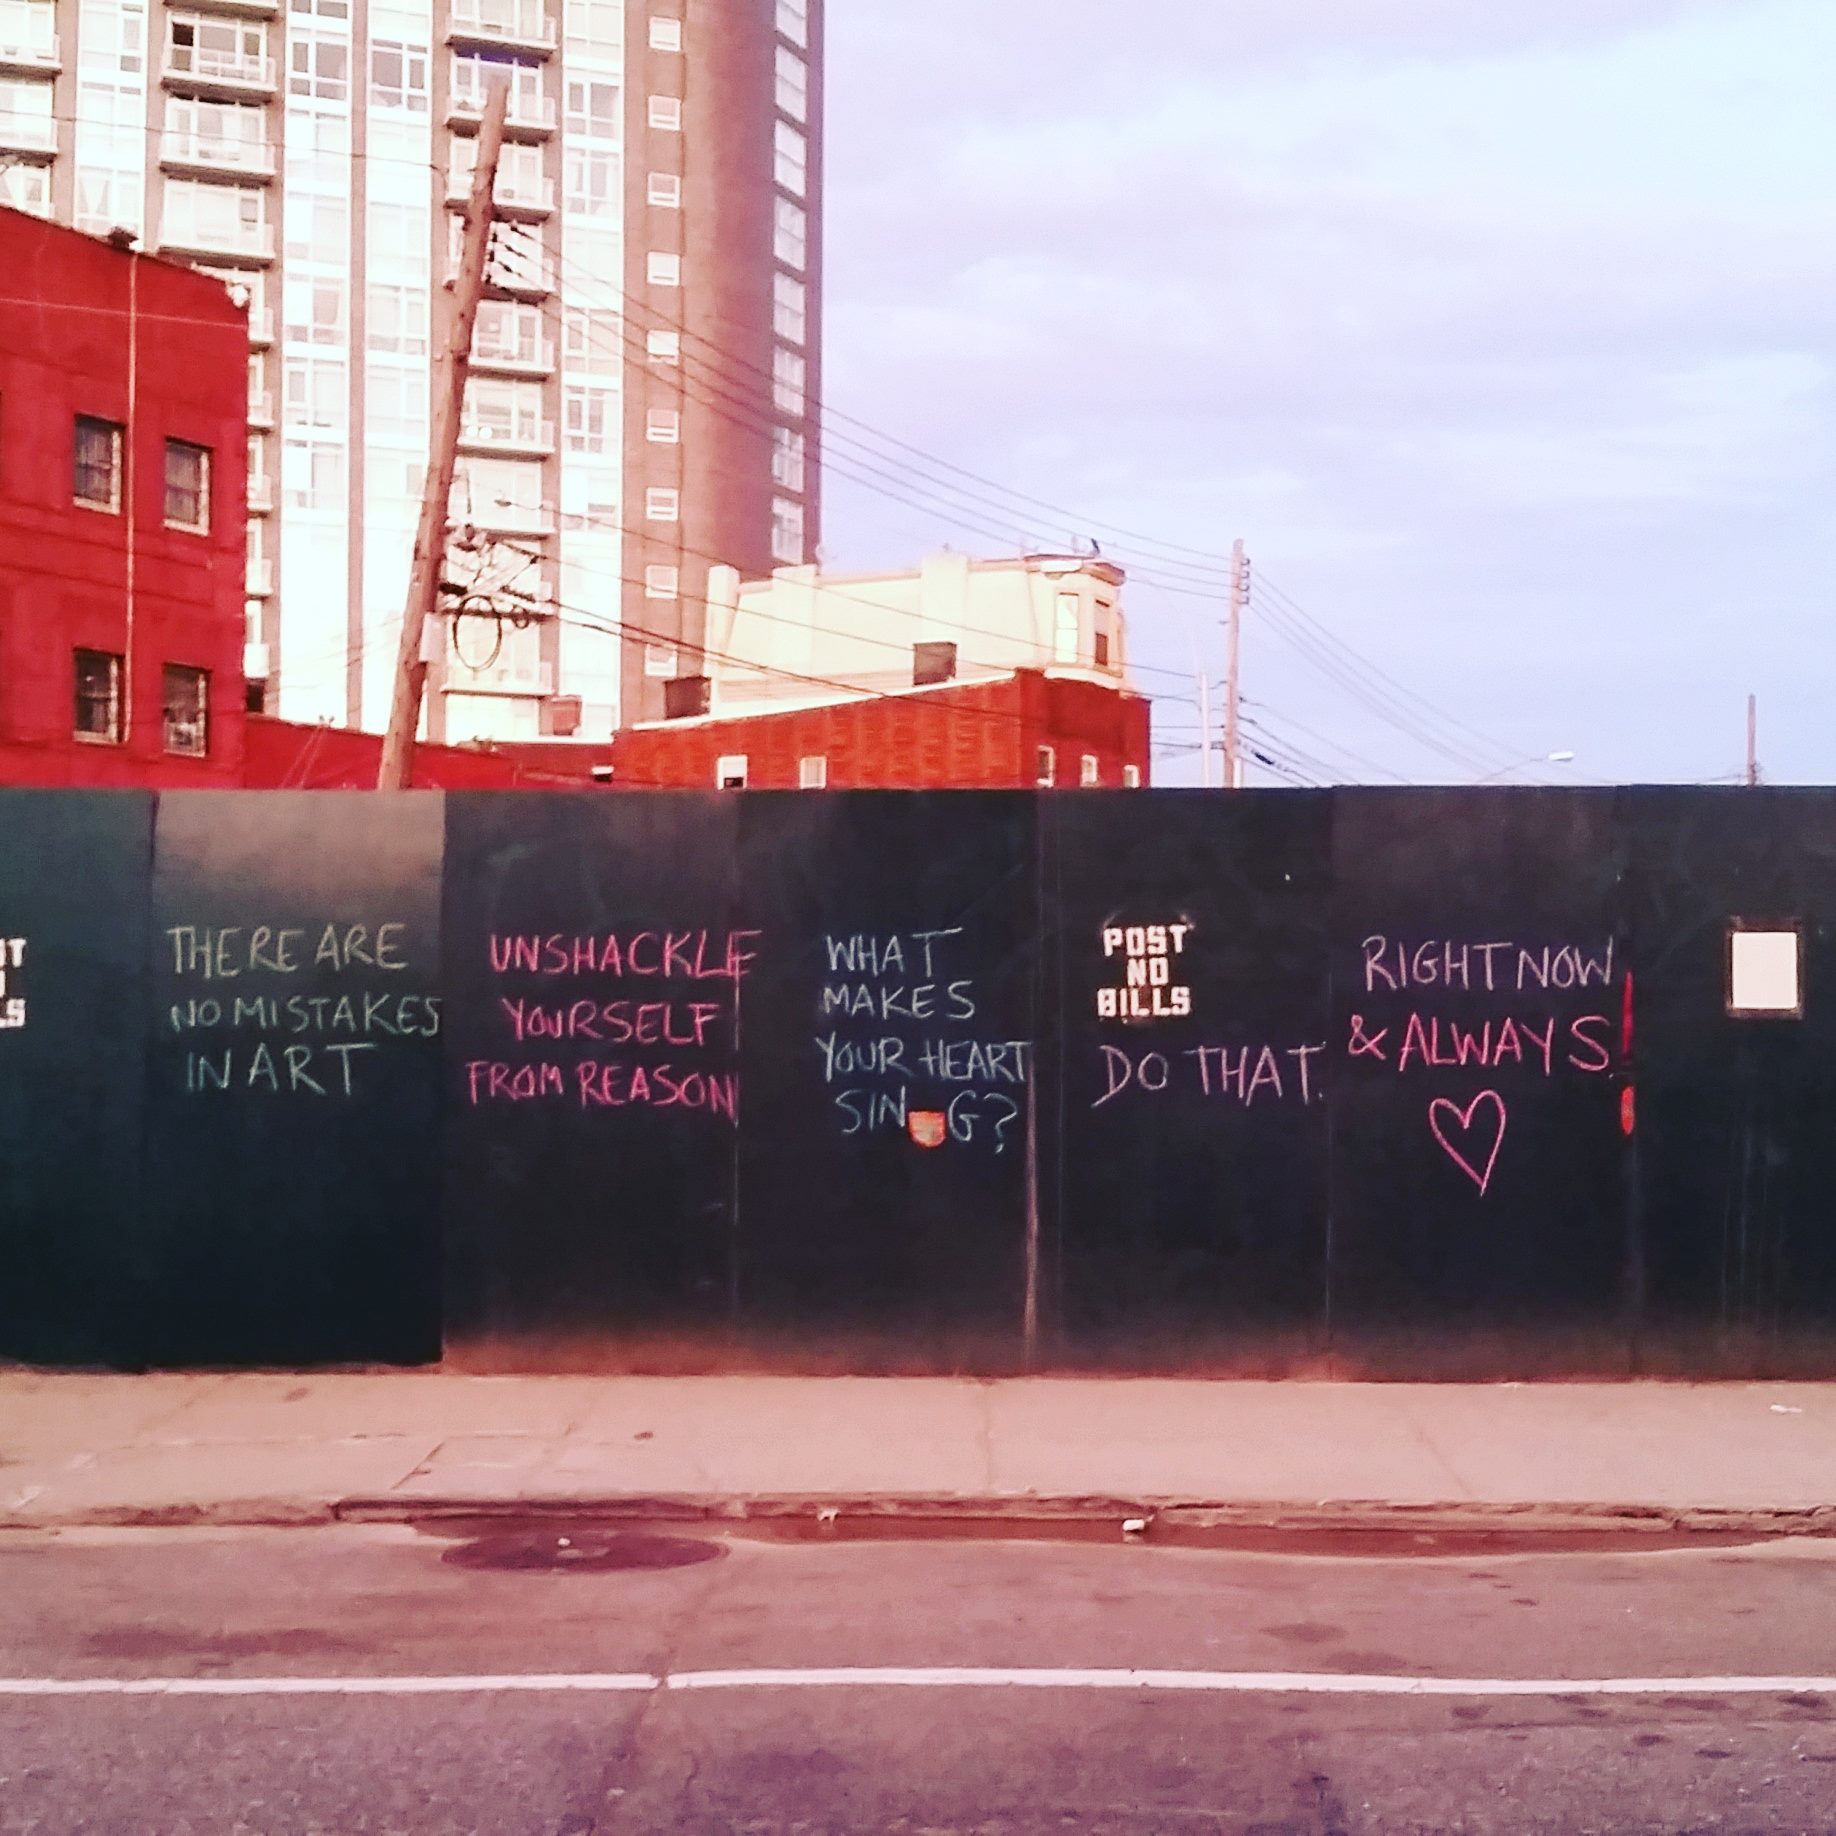 THERE ARE
NO MISTAKES
IN ART
UNSHACKLE
YOURSELF
FROM REASON
WHAT
MAKES
YOUR HEART
SING?
POST
NO
BILLS
DO THAT.
RIGHT NOW
& ALWAYS.